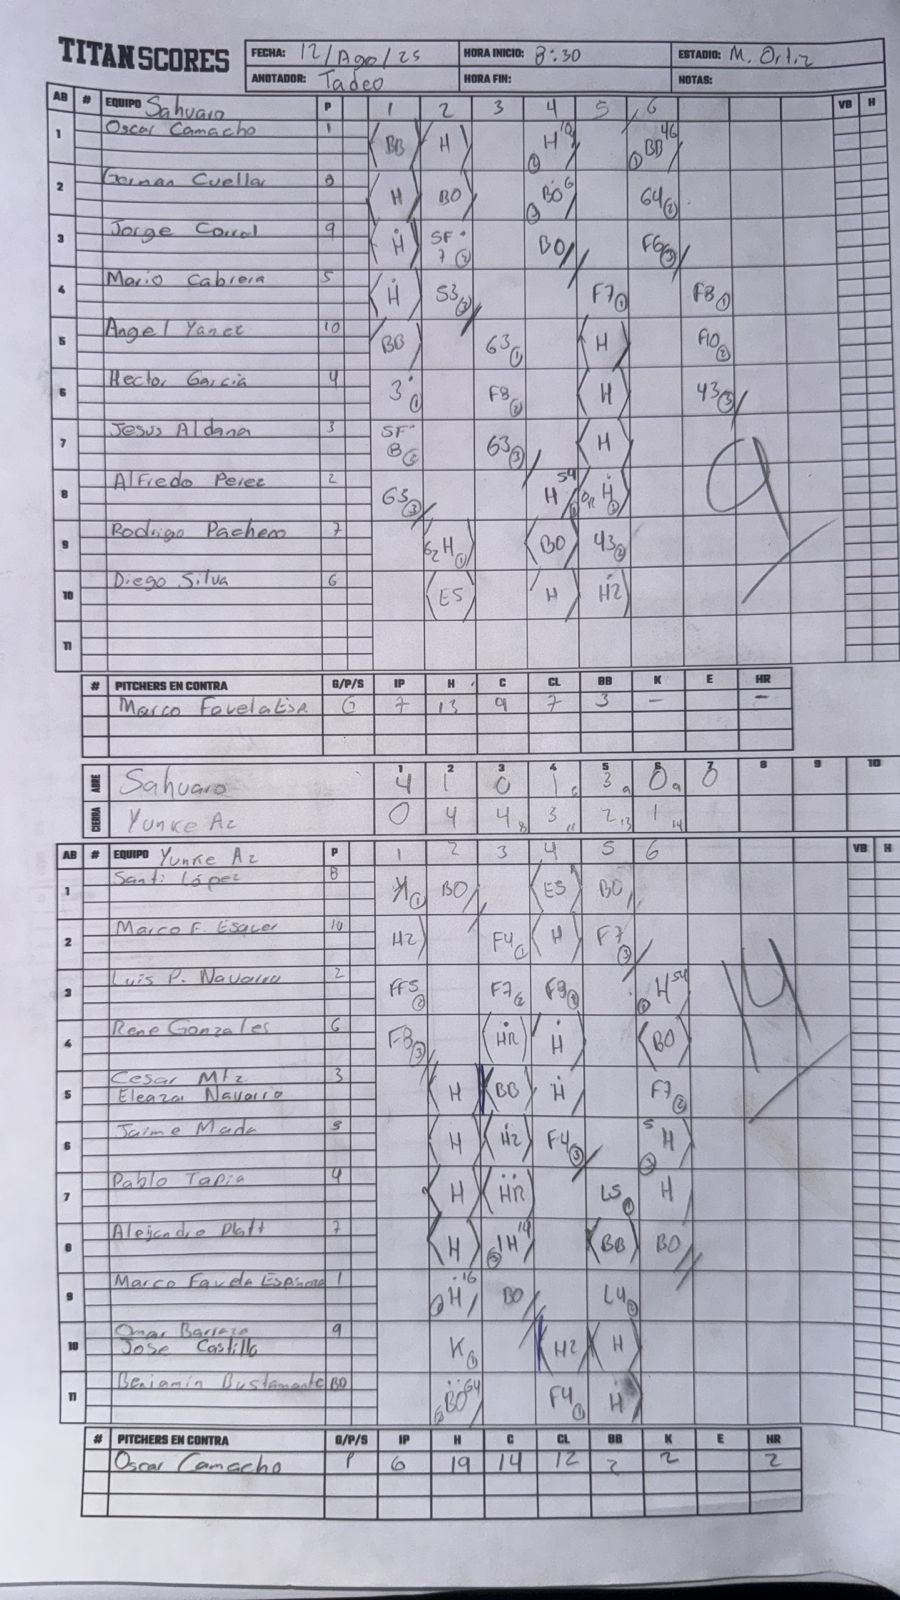 TITAN SCORES
FECHA: 12/Ago/25 HORA INICIO: 8:30 ESTADIO: M. Ortiz
ANOTADOR: Tadeo HORA FIN: NOTAS:
AB # EQUIPO Sahuaro P 1 2 3 4 5 6 VB H
1 Oscar Camacho 1 BB H H BB 46
2 German Cuellar 8 H BO BO 6 64 2
3 Jorge Corral 9 H SF 7 BO F6 3
4 Mario Cabrera 5 H 53 F7 1 F8 1
5 Angel Yanez 10 BB 63 1 H F10 2
6 Hector Garcia 4 3 1 F8 2 H 43 3
7 Jesus Aldana 3 SF 8 63 3 H
8 Alfredo Perez 2 63 3 H 54 H
9 Rodrigo Pacheco 7 62 H 1 BO 43 2
10 Diego Silva 6 E5 H H2
11
9
# PITCHERS EN CONTRA G/P/S IP H C CL BB K E HR
Marco Favela Esp. G 7 13 9 7 3 - -
1 2 3 4 5 6 7 8 9 10
ABRE Sahuaro 4 1 0 1 6 3 9 0 9 0
CIERRA Yunke Az 0 4 4 8 3 11 2 13 1 14
AB # EQUIPO Yunke Az P 1 2 3 4 5 6 VB H
1 Santi López 8 K 1 BO E5 BO
2 Marco F. Esquer 10 H2 F4 1 H F7 3
3 Luis P. Navarro 2 FF5 2 F7 2 F8 2 H 54
4 Rene Gonzales 6 F8 3 HR H BO
5 Cesar Mtz 3 H BB H F7 2
Eleazar Navarro
6 Jaime Mada 5 H H2 F4 3 5 H
7 Pablo Tapia 4 H HR L5 H
8 Alejandro Platt 7 H H 14 BB BO
9 Marco Favela Espinoza 1 H 16 BO L4
10 Omar Barraza 9 K H2 H
Jose Castillo
11 Benjamin Bustamante BO BO 64 F4 1 H
14
# PITCHERS EN CONTRA G/P/S IP H C CL BB K E HR
Oscar Camacho P 6 19 14 12 2 2 2